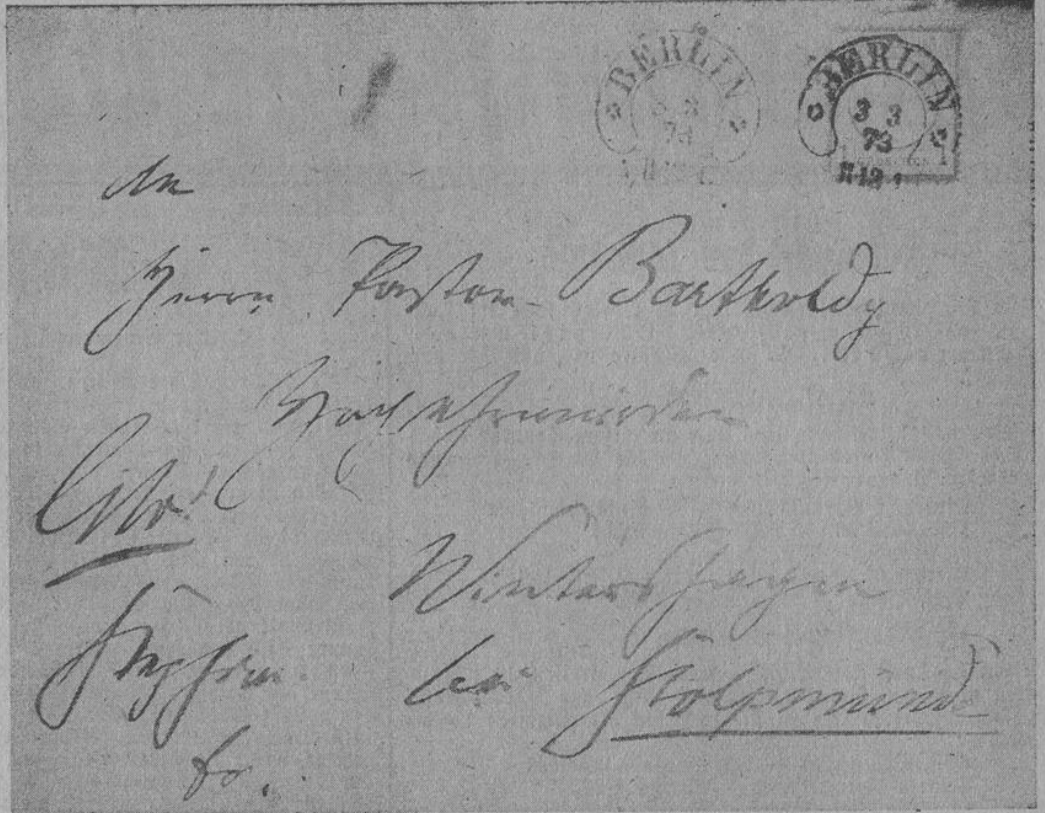 BERLIN
3 3
73
BERLIN
3 3
73
II 12
An
Herrn Pastor Bartholdy
Hochehrwürden
Cito!
Wintershagen
Stephan.
bei Stolpmünde
fr.